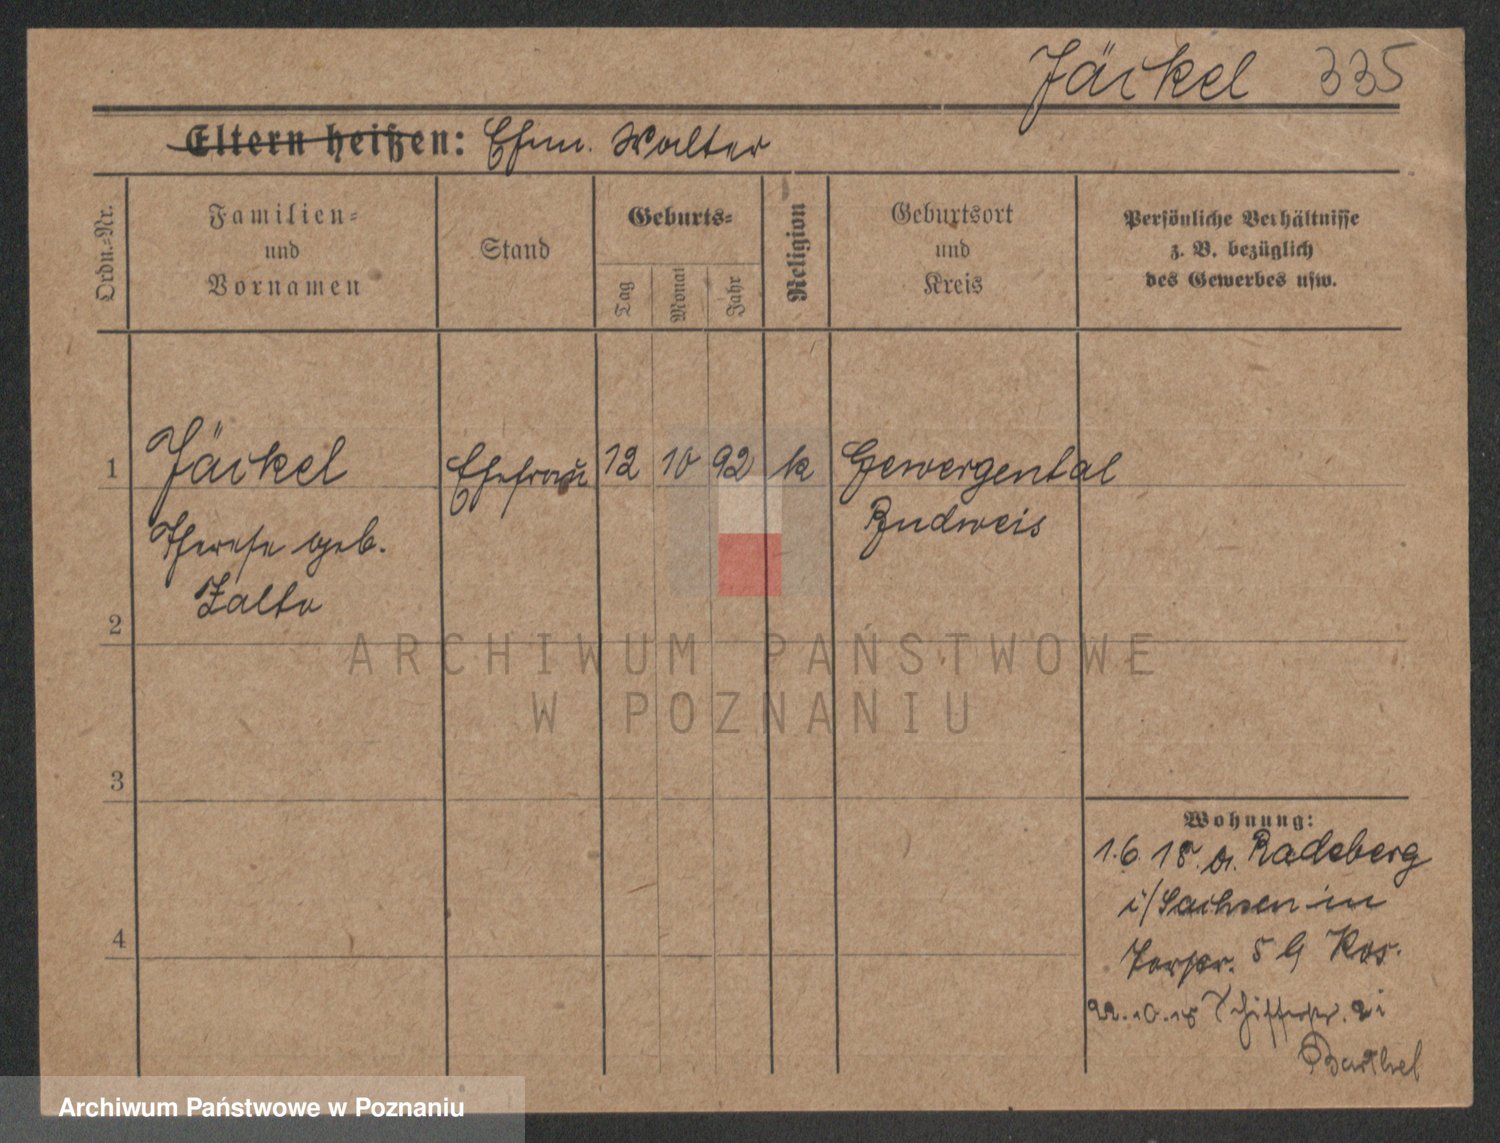 Jäckel 335
Eltern heißen: Ehm. Walter
Ordn.=Nr.
Familien=
und
Vornamen
Stand
Geburts=
Tag
Monat
Jahr
Religion
Geburtsort
und
Kreis
Persönliche Verhältnisse
z. B. bezüglich
des Gewerbes usw.
1 Jäckel Ehefrau 12 10 92 k Gewergental
Budweis
Therese geb.
Zalto
2
3
4
ARCHIWUM PAŃSTWOWE
W POZNANIU
Wohnung:
1.6.18. a. Radeberg
i/Sachsen in
5
22.10.18 Schifferstr. 21
Barthel
Archiwum Państwowe w Poznaniu